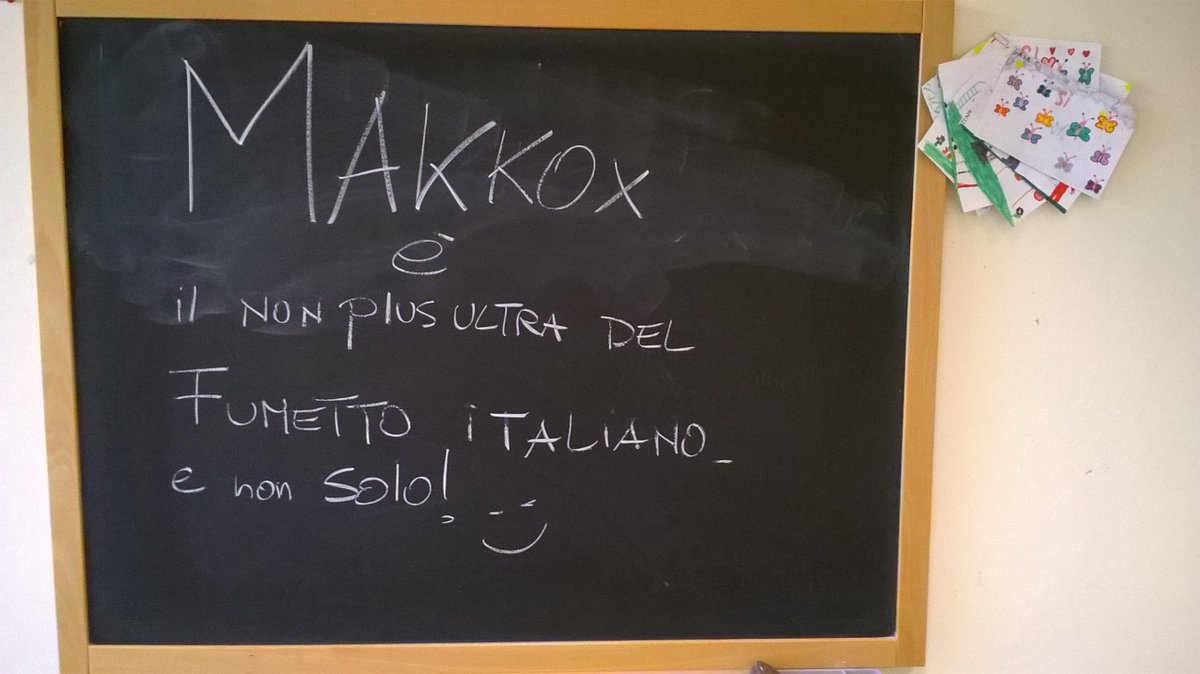 MAKKOX
è
il NON PlUS ULTRA DEL
FUMETTO iTALiANO_
e non SOlO!
SI